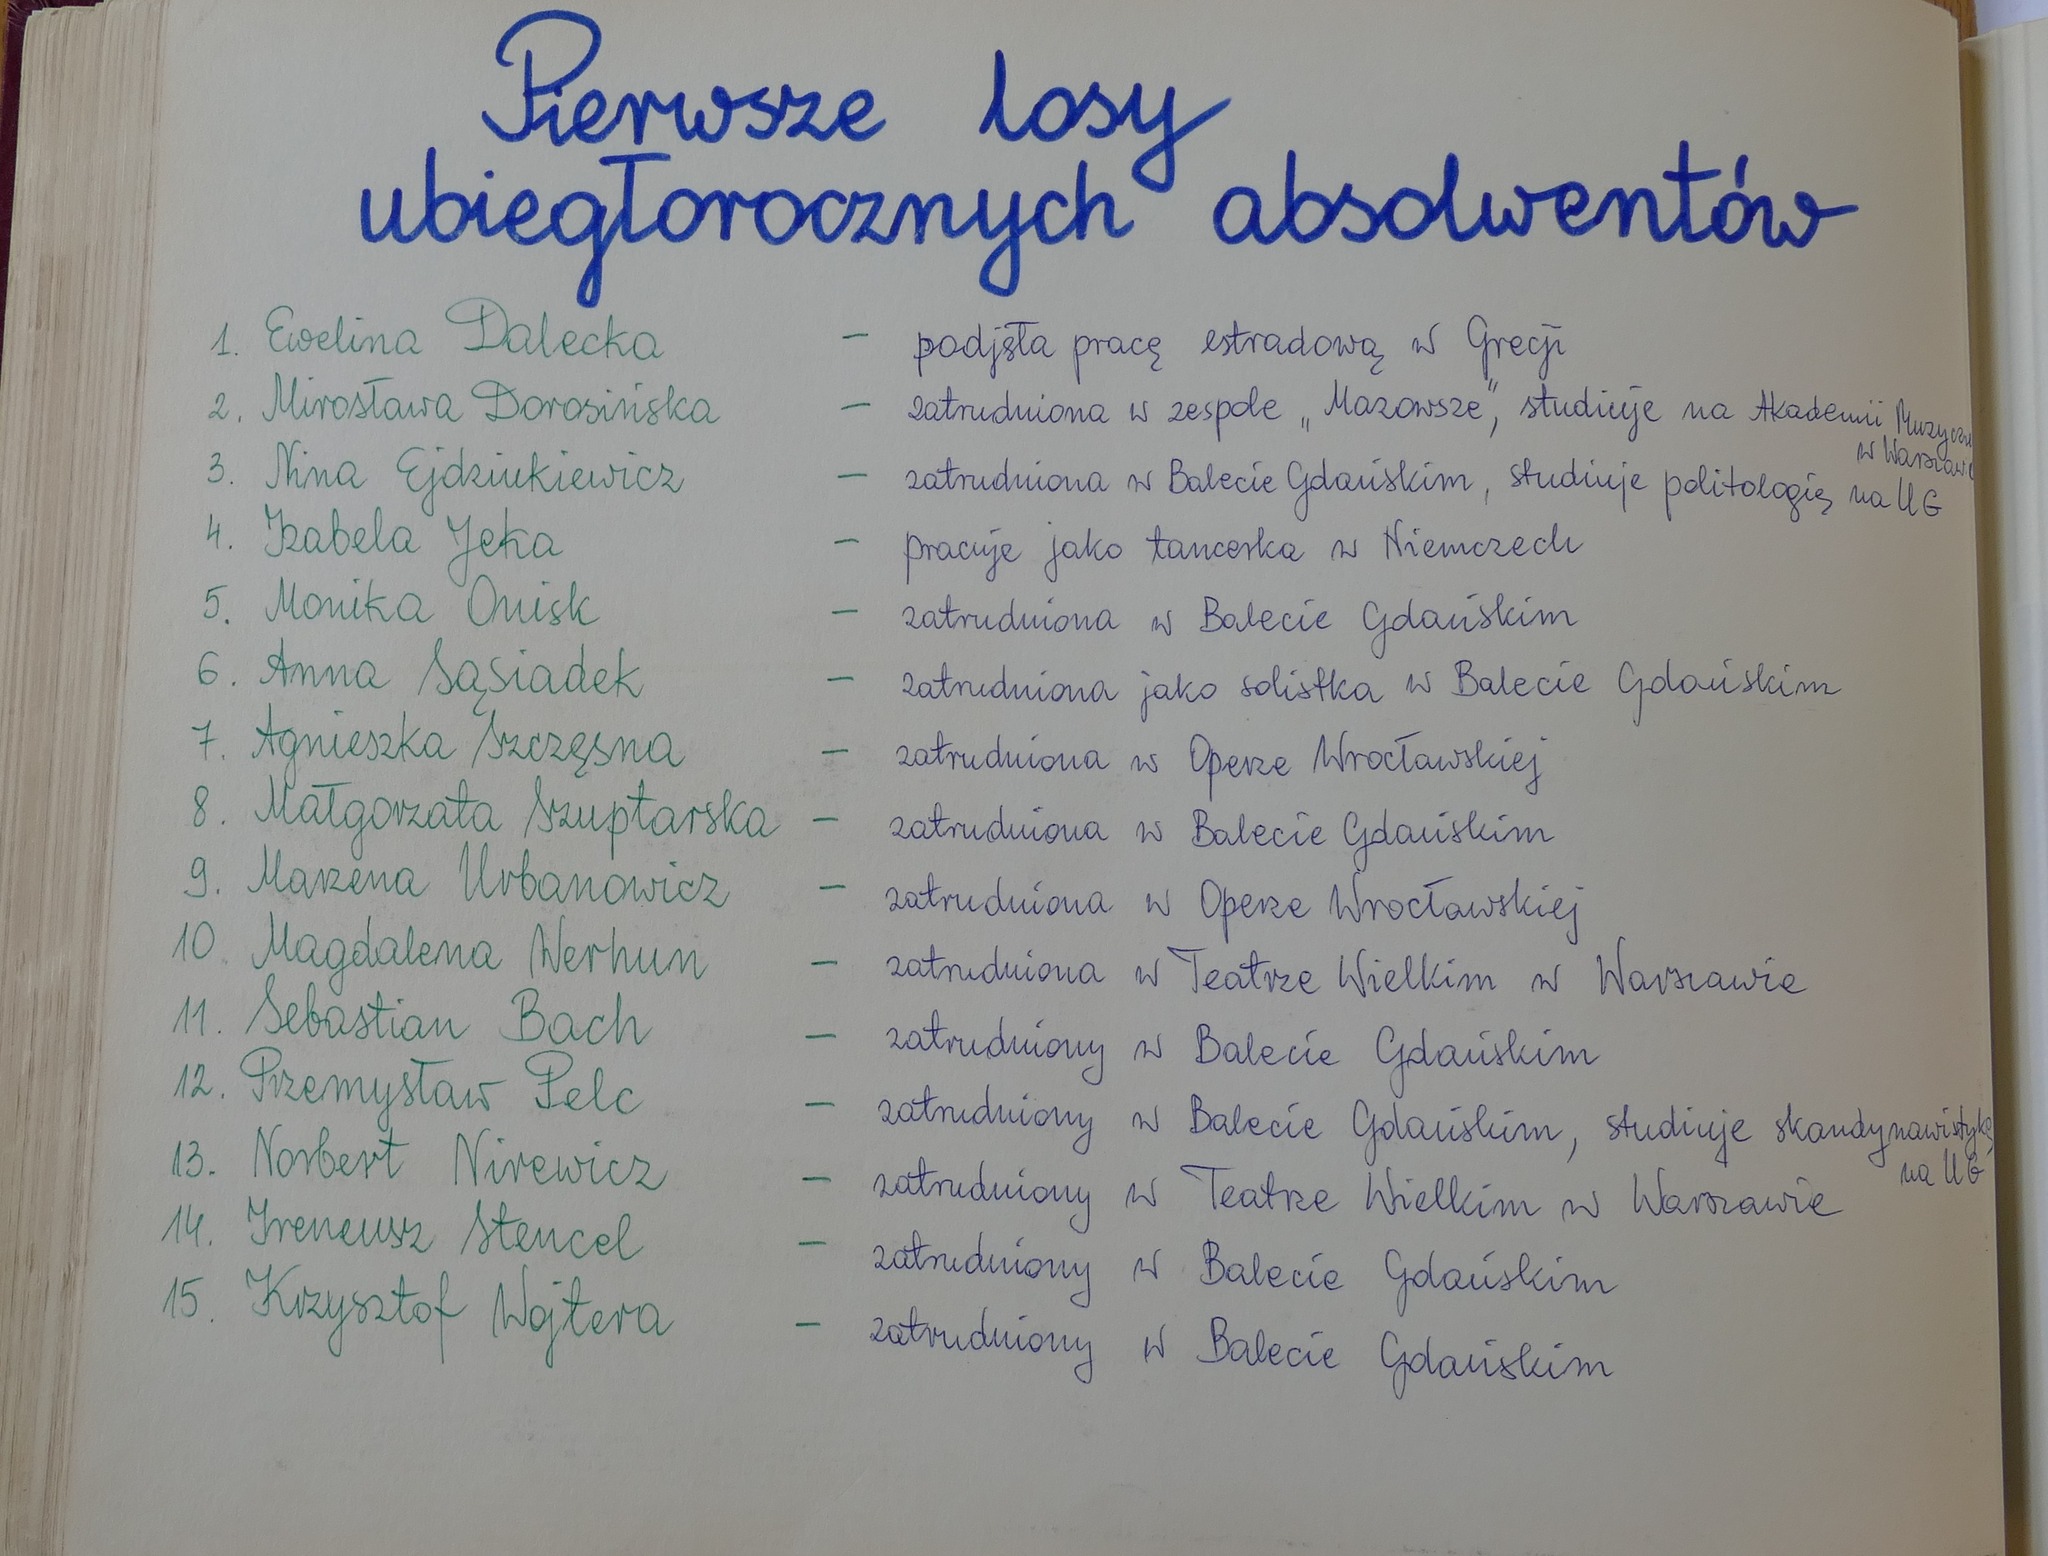 Pierwsze losy
ubiegłorocznych absolwentów
1. Ewelina Dalecka – podjęła pracę estradową w Grecji
2. Mirosława Dorosińska – zatrudniona w zespole „Mazowsze”, studiuje na Akademii
w Warszawie
3. Nina Ejdziukiewicz – zatrudniona w Balecie Gdańskim, studiuje politologię na UG
4. Izabela Jeka – pracuje jako tancerka w Niemczech
5. Monika Onisk – zatrudniona w Balecie Gdańskim
6. Anna Sąsiadek – zatrudniona jako solistka w Balecie Gdańskim
7. Agnieszka Szczęsna – zatrudniona w Operze Wrocławskiej
8. Małgorzata Szuptarska – zatrudniona w Balecie Gdańskim
9. Marzena Urbanowicz – zatrudniona w Operze Wrocławskiej
10. Magdalena Werhun – zatrudniona w Teatrze Wielkim w Warszawie
11. Sebastian Bach – zatrudniony w Balecie Gdańskim
12. Przemysław Pelc – zatrudniony w Balecie Gdańskim, studiuje skandynawistykę
na UG
13. Norbert Nirewicz – zatrudniony w Teatrze Wielkim w Warszawie
14. Ireneusz Stencel – zatrudniony w Balecie Gdańskim
15. Krzysztof Wojtera – zatrudniony w Balecie Gdańskim